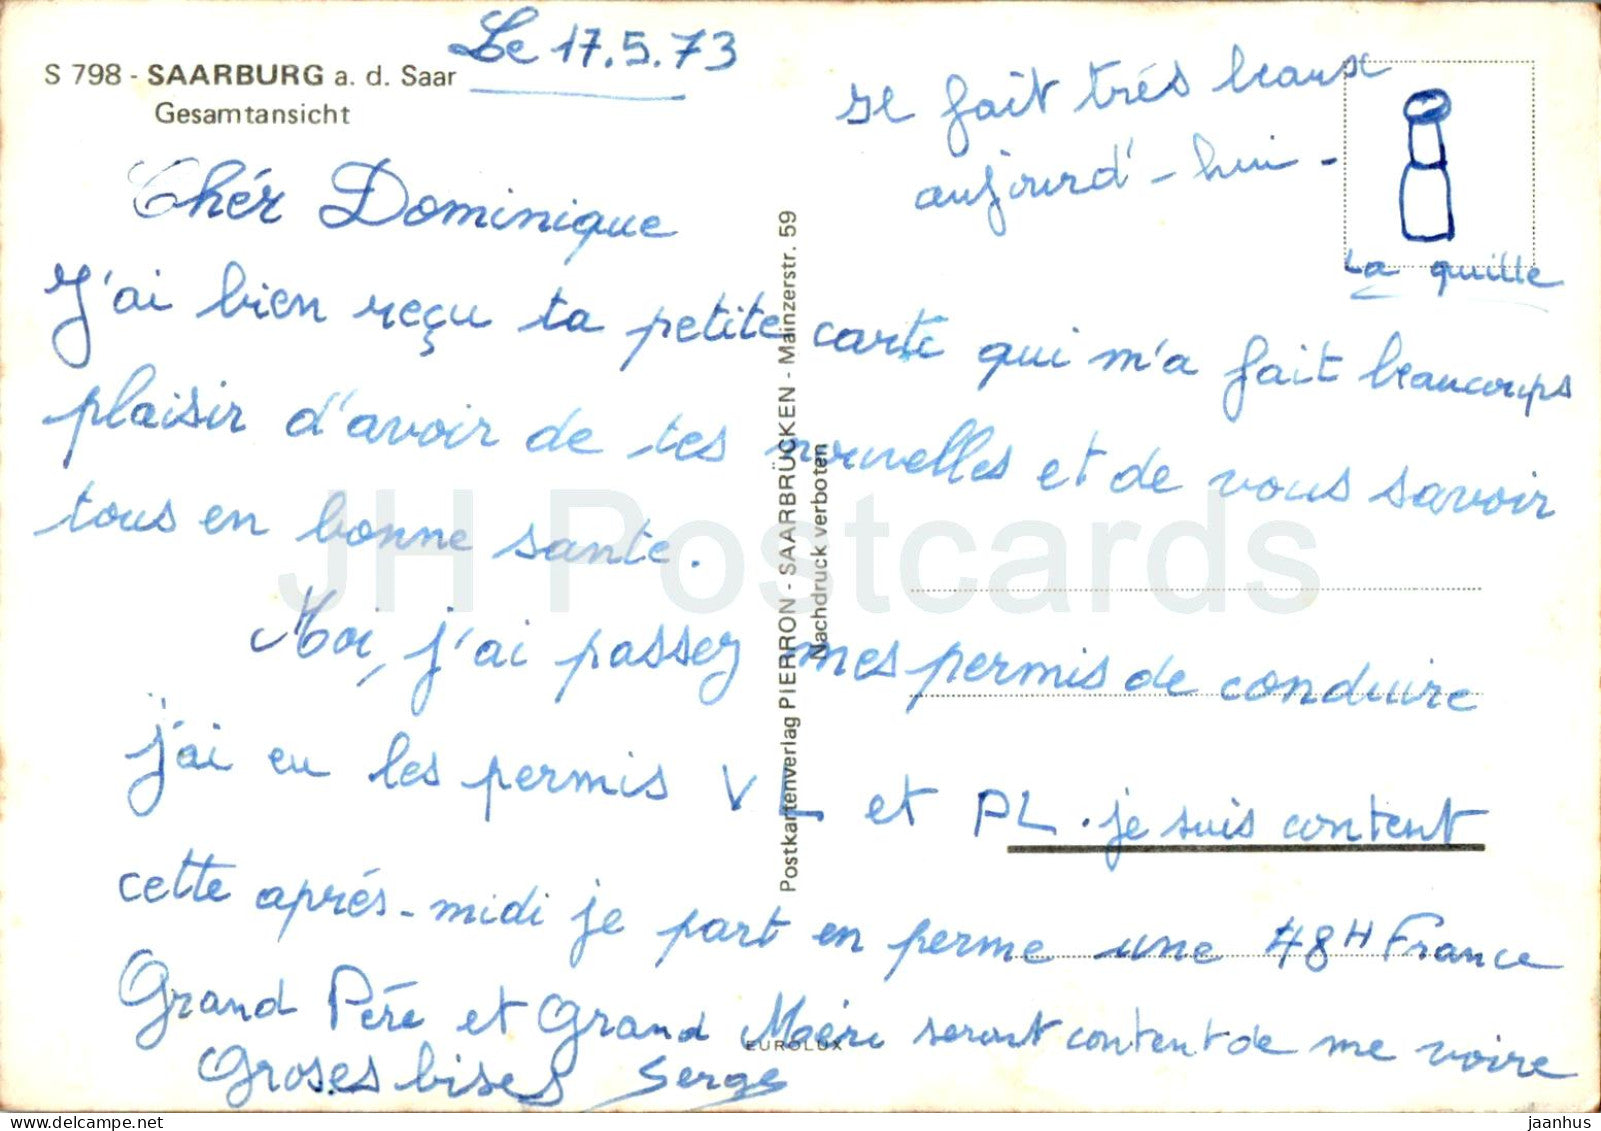 Le 17.5.73
S 798 - SAARBURG a. d. Saar
Gesamtansicht
se fait trés beaux
aujourd'-hui -
La quille
Chér Dominique
J'ai bien reçu ta petite carte qui m'a fait beaucoups
plaisir d'avoir de tes nouvelles et de vous savoir
tous en bonne sante.
Moi, j'ai passez mes permis de conduire
j'ai eu les permis VL et PL. je suis content
cette aprés-midi je part en perme une 48H France
Grand Pére et Grand Mére seront content de me voire
Groses bises Serge
Postkartenverlag PIERRON - SAARBRÜCKEN - Mainzerstr. 59
Nachdruck verboten
EUROLUX
JH Postcards
jaanhus | delcampe.net